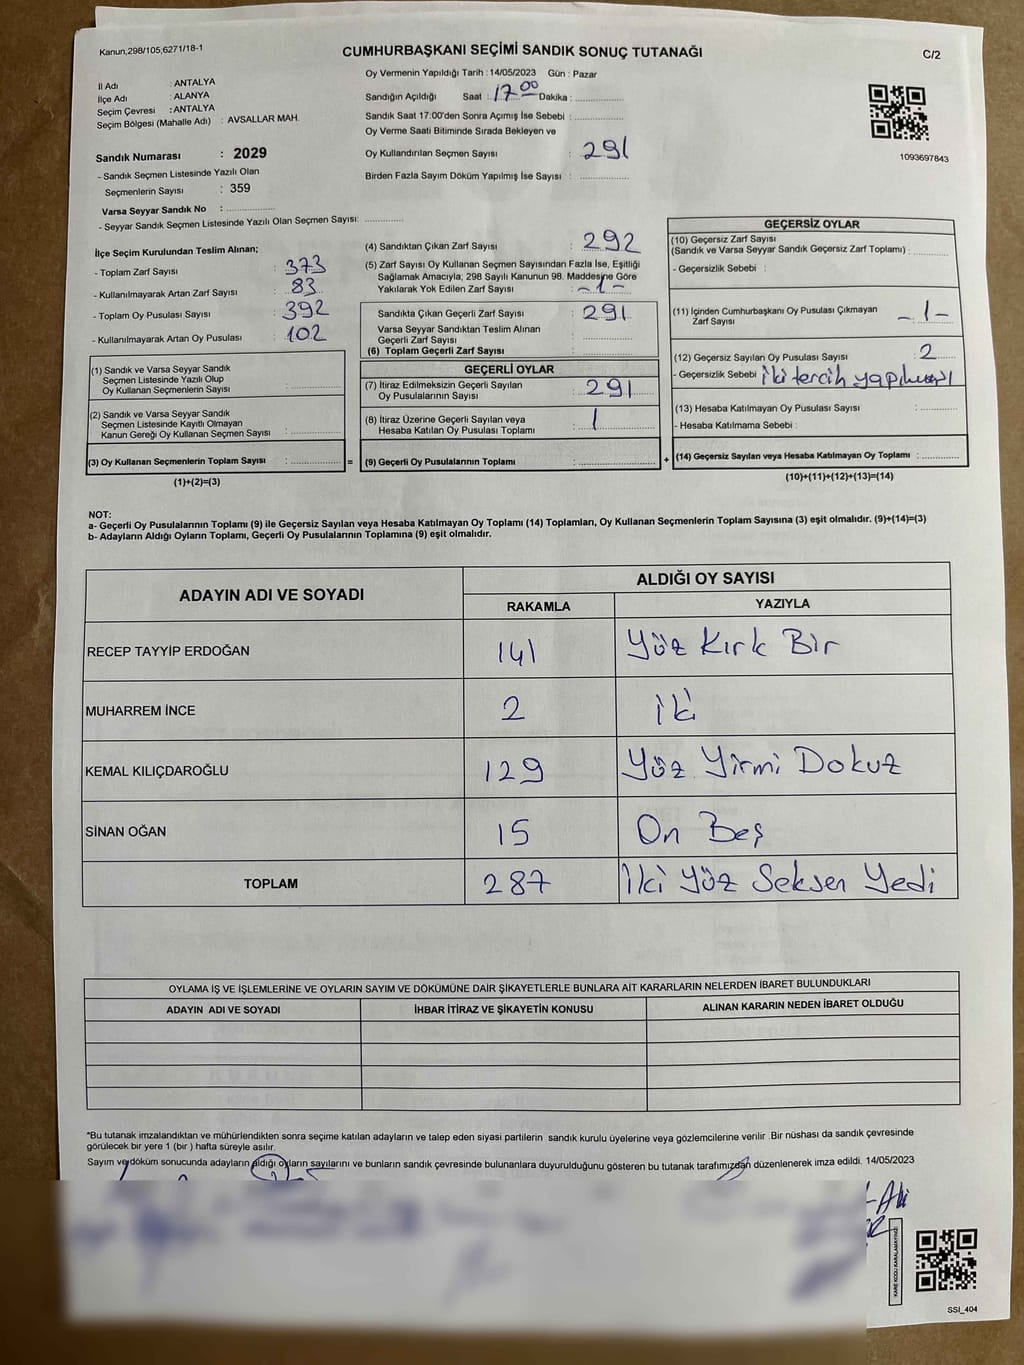 Kanun,298/105,6271/18-1
CUMHURBAŞKANI SEÇİMİ SANDIK SONUÇ TUTANAĞI
C/2
İl Adı : ANTALYA
İlçe Adı : ALANYA
Seçim Çevresi : ANTALYA
Seçim Bölgesi (Mahalle Adı) : AVSALLAR MAH.
Oy Vermenin Yapıldığı Tarih : 14/05/2023 Gün : Pazar
Sandığın Açıldığı Saat : 17 00 Dakika :
Sandık Saat 17:00'den Sonra Açımış İse Sebebi :
Oy Verme Saati Bitiminde Sırada Bekleyen ve
Oy Kullandırılan Seçmen Sayısı : 291
Birden Fazla Sayım Döküm Yapılmış İse Sayısı :
1093697843
Sandık Numarası : 2029
- Sandık Seçmen Listesinde Yazılı Olan
Seçmenlerin Sayısı : 359
Varsa Seyyar Sandık No :
- Seyyar Sandık Seçmen Listesinde Yazılı Olan Seçmen Sayısı:
İlçe Seçim Kurulundan Teslim Alınan;
- Toplam Zarf Sayısı : 373
- Kullanılmayarak Artan Zarf Sayısı : 83
- Toplam Oy Pusulası Sayısı : 392
- Kullanılmayarak Artan Oy Pusulası : 102
(1) Sandık ve Varsa Seyyar Sandık
Seçmen Listesinde Yazılı Olup
Oy Kullanan Seçmenlerin Sayısı :
(2) Sandık ve Varsa Seyyar Sandık
Seçmen Listesinde Kayıtlı Olmayan
Kanun Gereği Oy Kullanan Seçmen Sayısı :
(3) Oy Kullanan Seçmenlerin Toplam Sayısı :
(1)+(2)=(3)
(4) Sandıktan Çıkan Zarf Sayısı : 292
(5) Zarf Sayısı Oy Kullanan Seçmen Sayısından Fazla İse, Eşitliği
Sağlamak Amacıyla, 298 Sayılı Kanunun 98. Maddesine Göre
Yakılarak Yok Edilen Zarf Sayısı : -1-
Sandıkta Çıkan Geçerli Zarf Sayısı : 291
Varsa Seyyar Sandıktan Teslim Alınan
Geçerli Zarf Sayısı :
(6) Toplam Geçerli Zarf Sayısı :
GEÇERLİ OYLAR
(7) İtiraz Edilmeksizin Geçerli Sayılan
Oy Pusulalarının Sayısı : 291
(8) İtiraz Üzerine Geçerli Sayılan veya
Hesaba Katılan Oy Pusulası Toplamı : 1
= (9) Geçerli Oy Pusulalarının Toplamı :
GEÇERSİZ OYLAR
(10) Geçersiz Zarf Sayısı
(Sandık ve Varsa Seyyar Sandık Geçersiz Zarf Toplamı) :
- Geçersizlik Sebebi :
(11) İçinden Cumhurbaşkanı Oy Pusulası Çıkmayan
Zarf Sayısı : -1-
(12) Geçersiz Sayılan Oy Pusulası Sayısı : 2
- Geçersizlik Sebebi İki tercih yapılması
(13) Hesaba Katılmayan Oy Pusulası Sayısı :
- Hesaba Katılmama Sebebi :
+ (14) Geçersiz Sayılan veya Hesaba Katılmayan Oy Toplamı :
(10)+(11)+(12)+(13)=(14)
NOT:
a- Geçerli Oy Pusulalarının Toplamı (9) ile Geçersiz Sayılan veya Hesaba Katılmayan Oy Toplamı (14) Toplamları, Oy Kullanan Seçmenlerin Toplam Sayısına (3) eşit olmalıdır. (9)+(14)=(3)
b- Adayların Aldığı Oyların Toplamı, Geçerli Oy Pusulalarının Toplamına (9) eşit olmalıdır.
ADAYIN ADI VE SOYADI
ALDIĞI OY SAYISI
RAKAMLA YAZIYLA
RECEP TAYYİP ERDOĞAN 141 Yüz Kırk Bir
MUHARREM İNCE 2 İki
KEMAL KILIÇDAROĞLU 129 Yüz Yirmi Dokuz
SİNAN OĞAN 15 On Beş
TOPLAM 287 İki Yüz Seksen Yedi
OYLAMA İŞ VE İŞLEMLERİNE VE OYLARIN SAYIM VE DÖKÜMÜNE DAİR ŞİKAYETLERLE BUNLARA AİT KARARLARIN NELERDEN İBARET BULUNDUKLARI
ADAYIN ADI VE SOYADI İHBAR İTİRAZ VE ŞİKAYETİN KONUSU ALINAN KARARIN NEDEN İBARET OLDUĞU
*Bu tutanak imzalandıktan ve mühürlendikten sonra seçime katılan adayların ve talep eden siyasi partilerin sandık kurulu üyelerine veya gözlemcilerine verilir .Bir nüshası da sandık çevresinde
görülecek bir yere 1 (bir ) hafta süreyle asılır.
Sayım ve döküm sonucunda adayların aldığı oyların sayılarını ve bunların sandık çevresinde bulunanlara duyurulduğunu gösteren bu tutanak tarafımızdan düzenlenerek imza edildi. 14/05/2023
KARE KODU KARALAMAYINIZ!
SSI_404